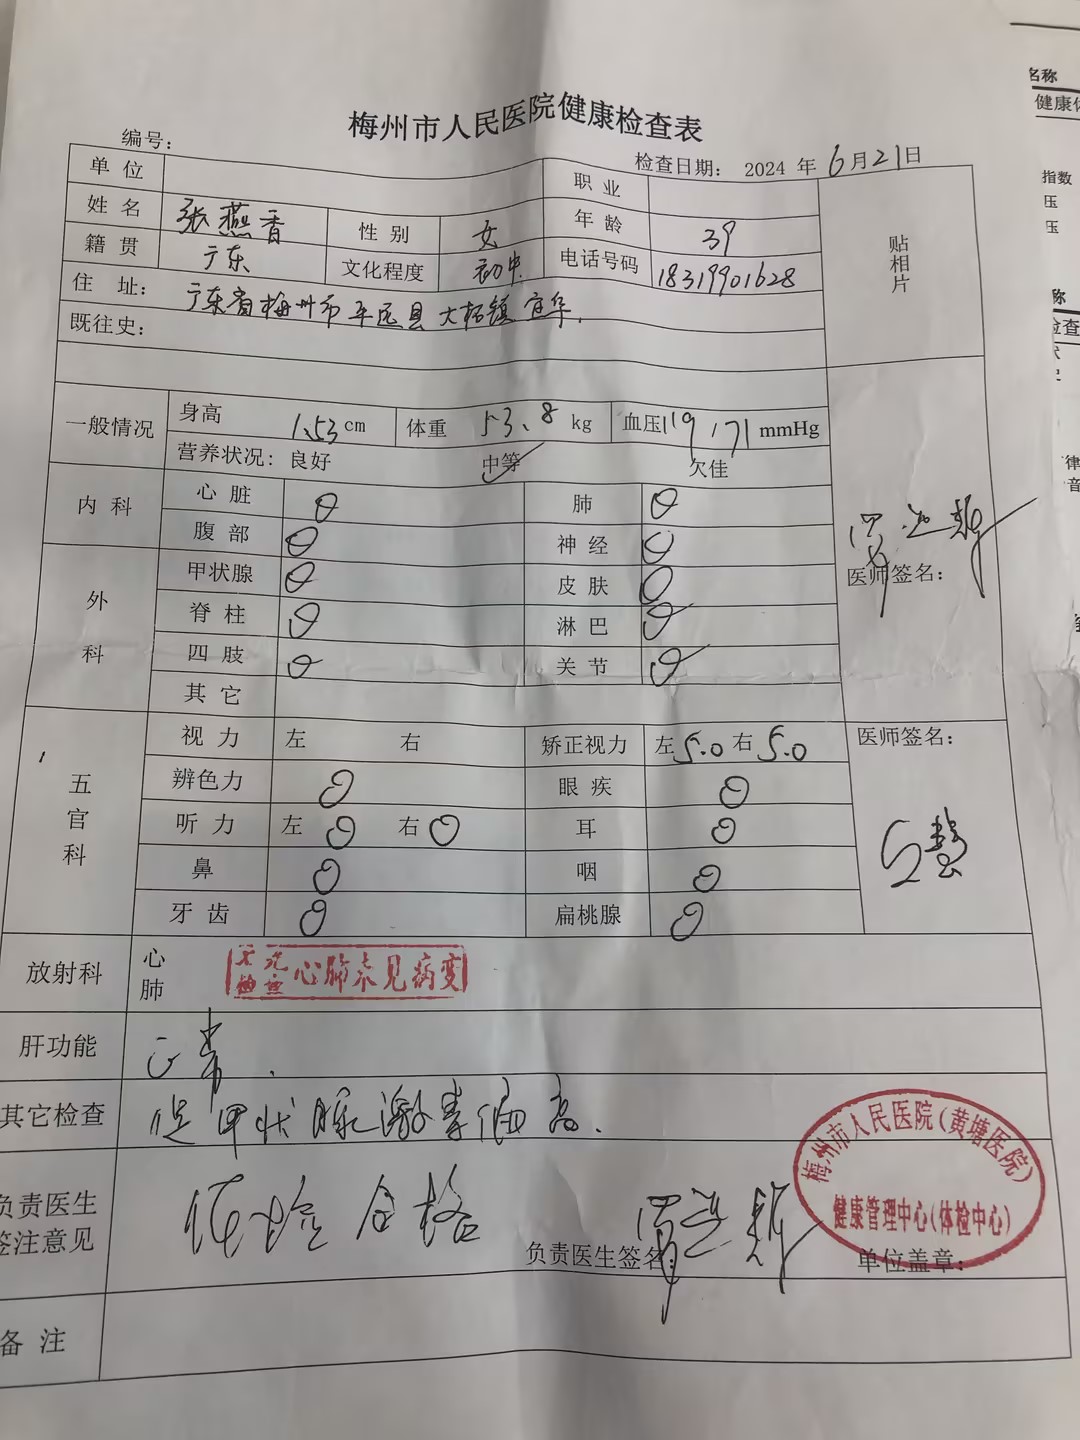 梅州市人民医院健康检查表
编号：
检查日期： 2024 年 6月21日
单位 职业
姓名 张燕香 性别 女 年龄 39
籍贯 广东 文化程度 初中 电话号码 18319901628
贴相片
住址： 广东省梅州市平远县大柘镇宜华.
既往史：
一般情况 身高 1.53cm 体重 53.8 kg 血压119/71 mmHg
营养状况：良好 中等 欠佳
内科 心脏 肺
腹部 神经
外科 甲状腺 皮肤
医师签名：
脊柱 淋巴
四肢 关节
其它
五官科 视力 左 右 矫正视力 左5.0右5.0 医师签名：
辨色力 眼疾
听力 左 右 耳
鼻 咽
牙齿 扁桃腺
放射科 心肺 心肺未见病变
肝功能 正常.
其它检查 促甲状腺激素偏高.
负责医生签注意见 体检合格
负责医生签名 单位盖章：
梅州市人民医院(黄塘医院)
健康管理中心(体检中心)
备注
名称
健康体
指数
压
压
称
检查
律
音